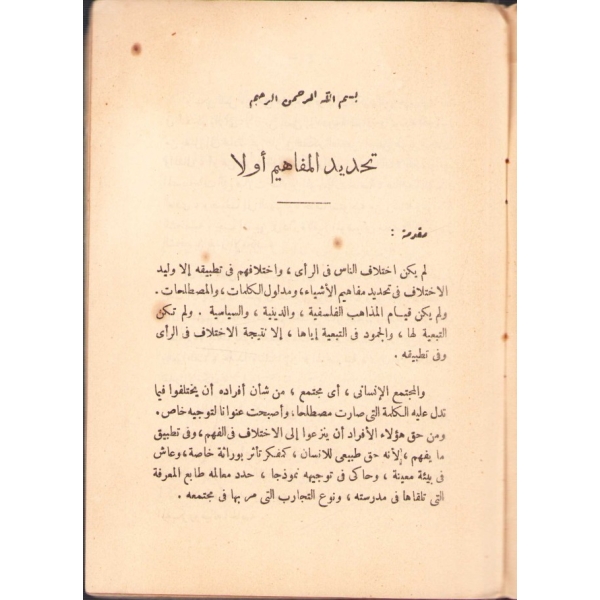 بسم الله الرحمن الرحيم
تحديد المفاهيم أولا
مقدمة :
لم يكن اختلاف الناس فى الرأى ، واختلافهم فى تطبيقه إلا وليد
الاختلاف فى تحديد مفاهيم الأشياء، ومدلول الكلمات، والمصطلحات .
ولم يكن قيام المذاهب الفلسفية ، والدينية ، والسياسية . ولم تكن
التبعية لها ، والجمود فى التبعية إياها ، إلا نتيجة الاختلاف فى الرأى
وفى تطبيقه .
والمجتمع الإنسانى ، أى مجتمع ، من شأن أفراده أن يختلفوا فيما
تدل عليه الكلمة التى صارت مصطلحا، وأصبحت عنوانا لتوجيه خاص .
ومن حق هؤلاء الأفراد أن ينزعوا إلى الاختلاف فى الفهم ، وفى تطبيق
ما يفهم ، لأنه حق طبيعى للانسان ، كمفكر تأثر بوراثة خاصة ، وعاش
فى بيئة معينة ، وحاكى فى توجيهه نموذجا ، حدد معالمه طابع المعرفة
التى تلقاها فى مدرسته ، ونوع التجارب التى مر بها فى مجتمعه .